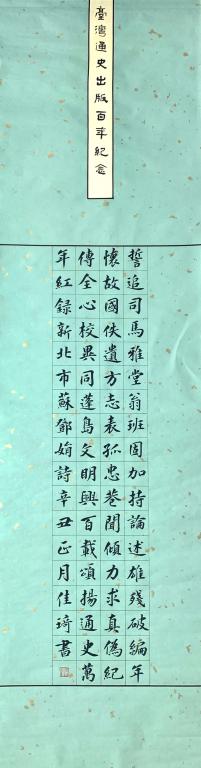 臺灣通史出版百年紀念
誓追司馬雅堂翁班固加持論述雄殘破編年
懷故國佚遺方志表孤忠巷聞傾力求真偽紀
傳全心校異同蓬島文明興百載頌揚通史萬
年紅録新北市蘇鄧娟詩辛丑正月佳琦書